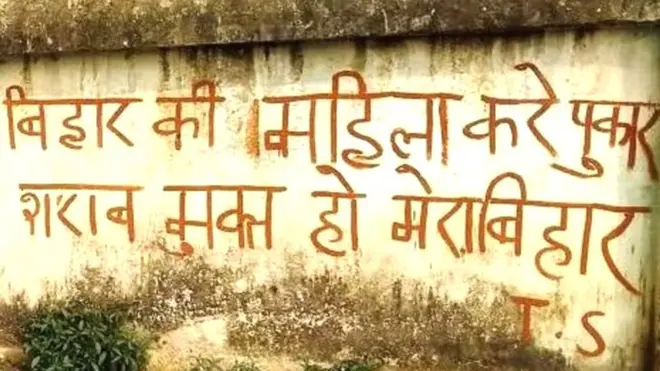 बिहार की महिला करे पुकार
शराब मुक्त हो मेरा बिहार
T S